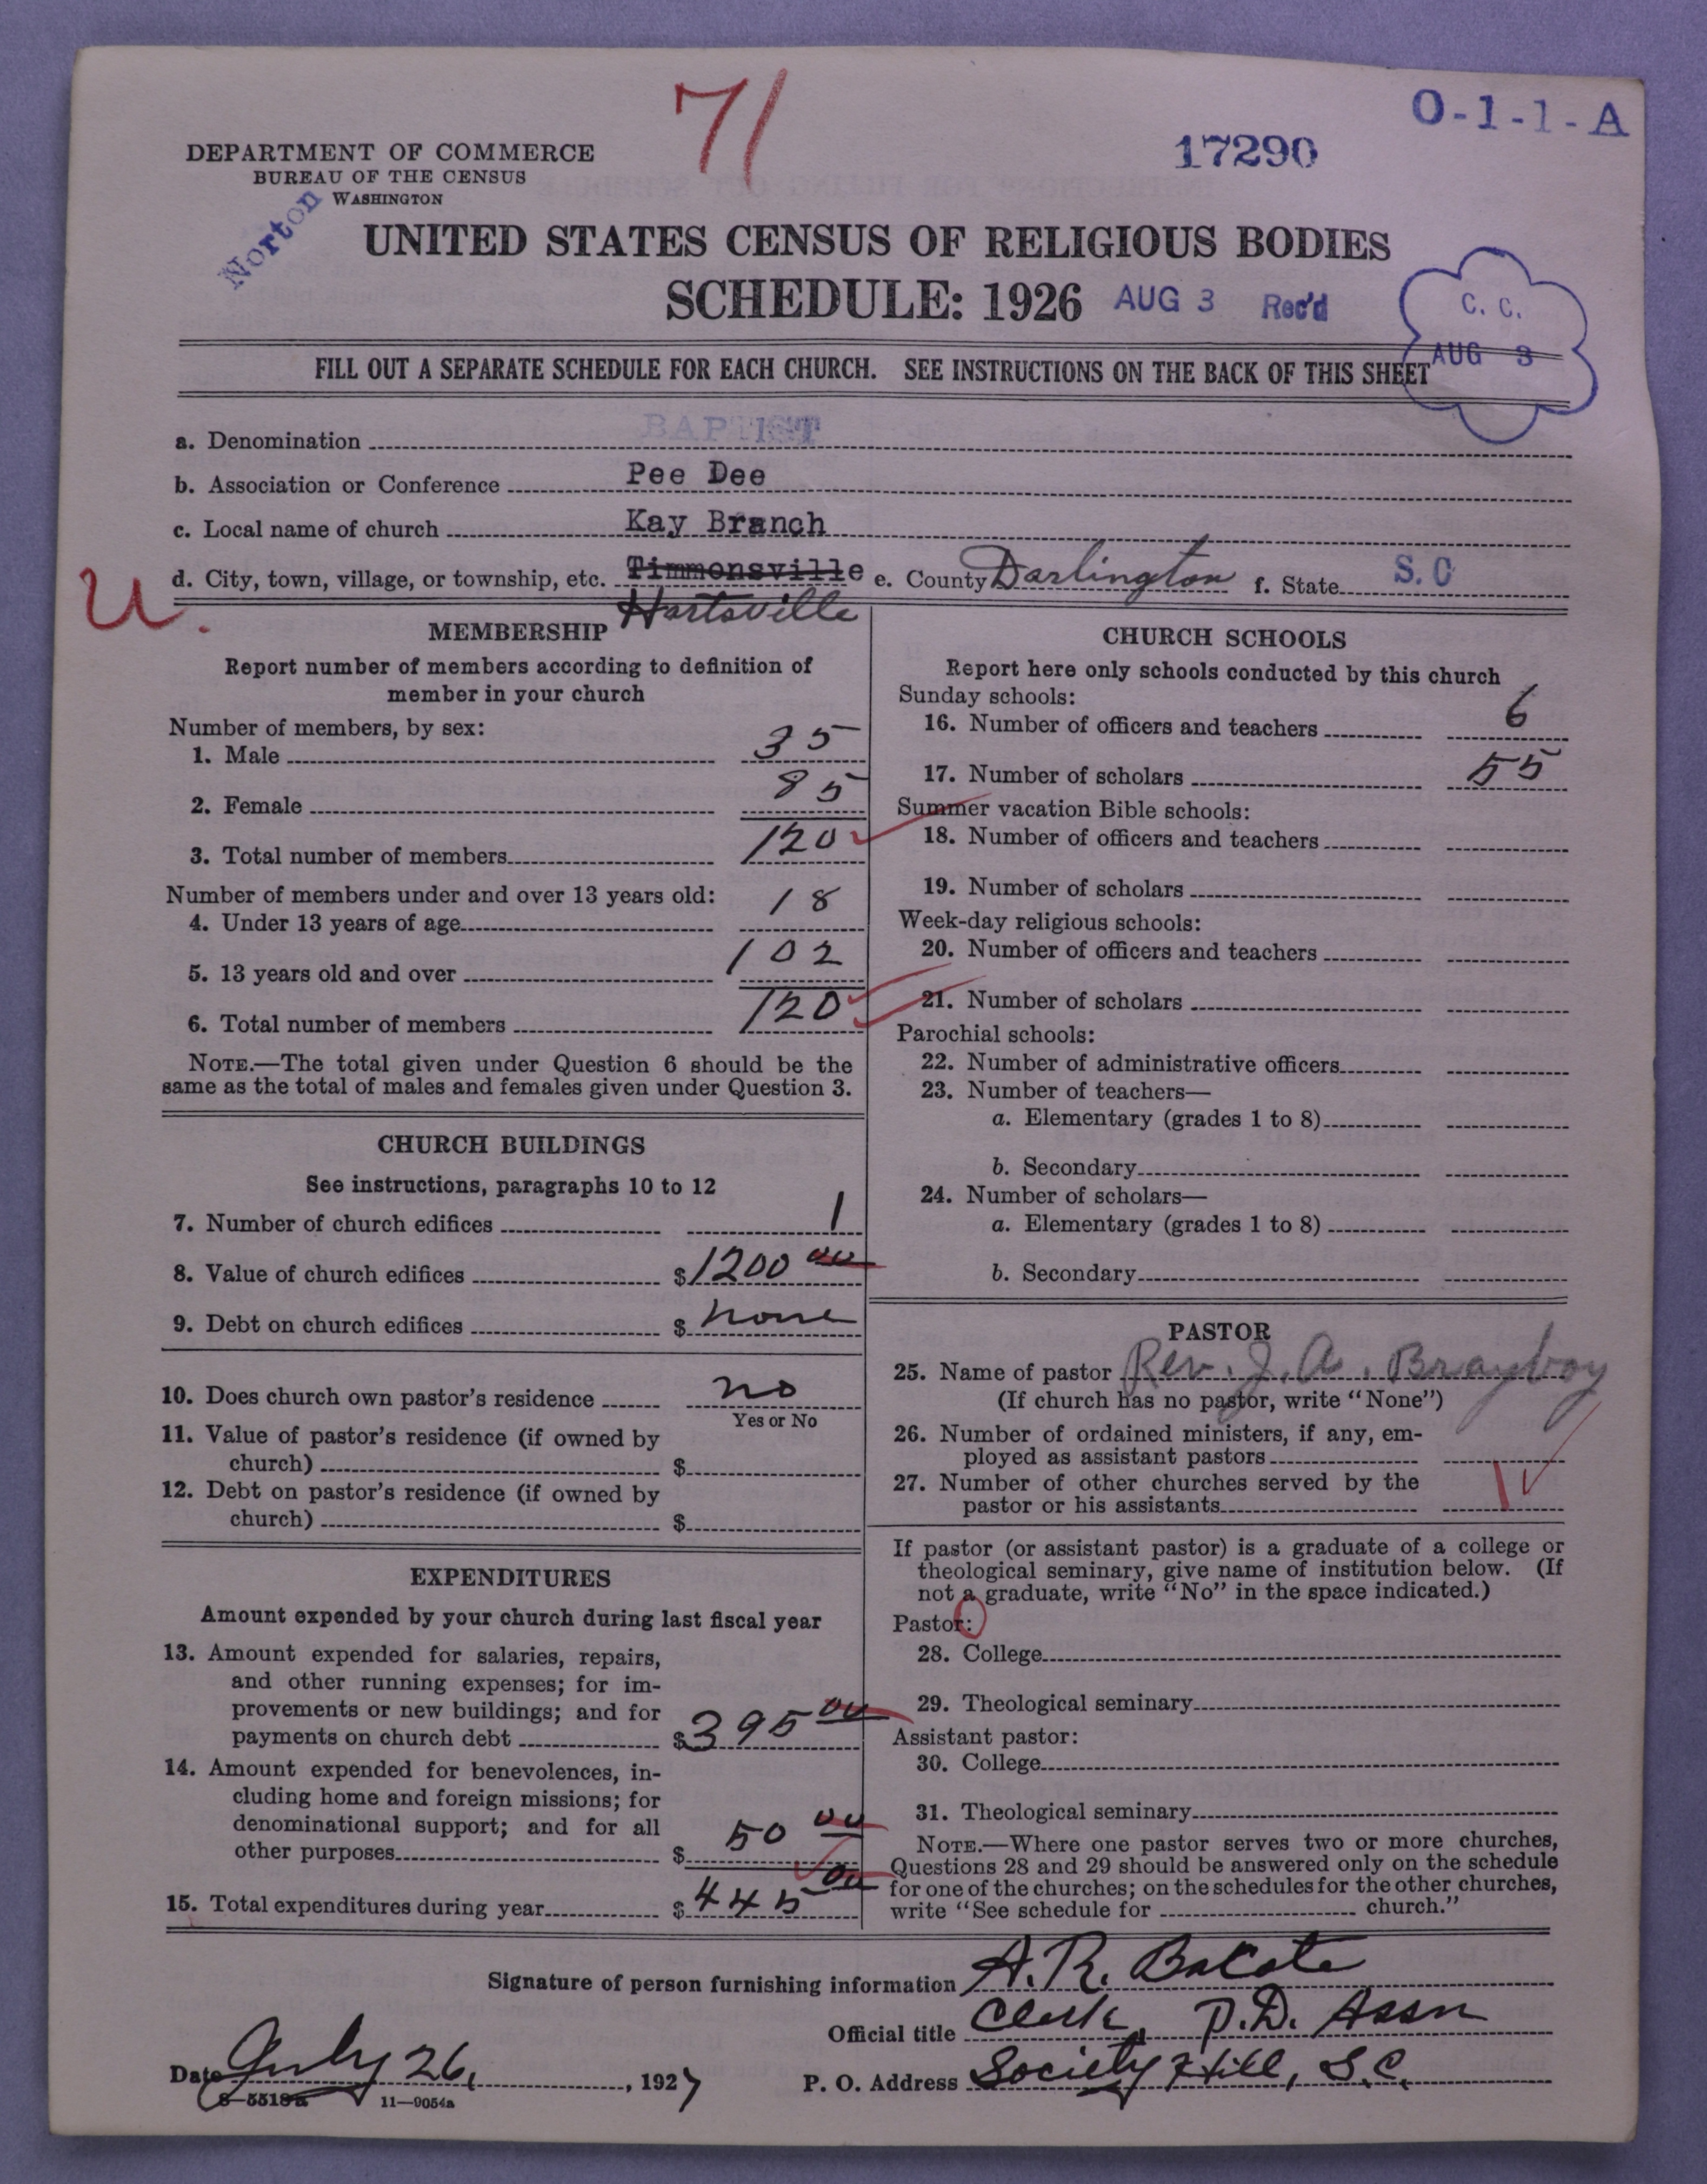 71
O-1-1-A
17290
DEPARTMENT OF COMMERCE
BUREAU OF THE CENSUS
WASHINGTON
Norton
UNITED STATES CENSUS OF RELIGIOUS BODIES
SCHEDULE: 1926 AUG 3 Rec'd
C. C.
AUG 3
FILL OUT A SEPARATE SCHEDULE FOR EACH CHURCH. SEE INSTRUCTIONS ON THE BACK OF THIS SHEET
a. Denomination BAPTIST
b. Association or Conference Pee Dee
c. Local name of church Kay Branch
d. City, town, village, or township, etc. Timmonsville e. County Darlington f. State S. C
Hartsville
U.
MEMBERSHIP
Report number of members according to definition of
member in your church
Number of members, by sex:
1. Male 35
2. Female 85
3. Total number of members 120
Number of members under and over 13 years old:
4. Under 13 years of age 18
5. 13 years old and over 102
6. Total number of members 120
NOTE.—The total given under Question 6 should be the
same as the total of males and females given under Question 3.
CHURCH BUILDINGS
See instructions, paragraphs 10 to 12
7. Number of church edifices 1
8. Value of church edifices $1200 00
9. Debt on church edifices $ none
10. Does church own pastor's residence no
Yes or No
11. Value of pastor's residence (if owned by
church) $
12. Debt on pastor's residence (if owned by
church) $
EXPENDITURES
Amount expended by your church during last fiscal year
13. Amount expended for salaries, repairs,
and other running expenses; for im-
provements or new buildings; and for
payments on church debt $395 00
14. Amount expended for benevolences, in-
cluding home and foreign missions; for
denominational support; and for all
other purposes $ 50 00
15. Total expenditures during year $445 00
CHURCH SCHOOLS
Report here only schools conducted by this church
Sunday schools:
16. Number of officers and teachers 6
17. Number of scholars 55
Summer vacation Bible schools:
18. Number of officers and teachers
19. Number of scholars
Week-day religious schools:
20. Number of officers and teachers
21. Number of scholars
Parochial schools:
22. Number of administrative officers
23. Number of teachers—
a. Elementary (grades 1 to 8)
b. Secondary
24. Number of scholars—
a. Elementary (grades 1 to 8)
b. Secondary
PASTOR
25. Name of pastor Rev. J. A. Brayboy
(If church has no pastor, write "None")
26. Number of ordained ministers, if any, em-
ployed as assistant pastors
27. Number of other churches served by the
pastor or his assistants
If pastor (or assistant pastor) is a graduate of a college or
theological seminary, give name of institution below. (If
not a graduate, write "No" in the space indicated.)
Pastor:
28. College
29. Theological seminary
Assistant pastor:
30. College
31. Theological seminary
NOTE.—Where one pastor serves two or more churches,
Questions 28 and 29 should be answered only on the schedule
for one of the churches; on the schedules for the other churches,
write "See schedule for church."
Signature of person furnishing information A. R. Bacote
Official title Clerk, P.D. Assn
Date July 26, 1927 P. O. Address Society Hill, S.C.
8—5518a 11—9054a